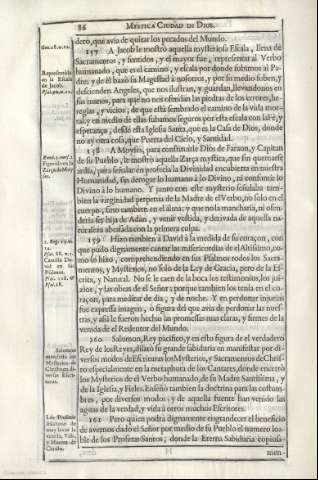 86 MYSTICA CIUDAD DE DIOS.
dero, que avia de quitar los pecados del Mundo.
157 A Jacob le mostrò aquella mysteriosa Escala, llena de
Sacramentos, y sentidos, y el mayor fue, representar al Verbo
humanado, que es el camino, y escala por donde subimos al Pa-
dre, y de èl baxò su Magestad à nosotros, y por su medio suben, y
descienden Angeles, que nos ilustran, y guardan, llevandonos en
sus manos, para que no nos ofendan las piedras de los errores, he-
regias, y vicios, de que està sembrado el camino de la vida mor-
tal, y en medio de ellas subamos seguros por esta escala con la Fè, y
esperança, desde esta Iglesia Santa, que es la Casa de Dios, donde
no ay otra cosa, que Puerta del Cielo, y Santidad.
158 A Moysès, para constituirle Dios de Faraon, y Capitan
de su Pueblo, le mostrò aquella Zarça mystica, que sin quemarse
ardia, para señalar en profecia la Divinidad encubierta en nuestra
Humanidad, sin derogar lo humano à lo Divino, ni consumir lo
Divino à lo humano. Y junto con este mysterio señalaba tam-
bien la virginidad perpetua de la Madre del Verbo, no solo en el
cuerpo, sino tambien en el alma; y que no la mancharia, ni ofen-
deria ser hija de Adàn, y venir vestida, y derivada de aquella na-
turaleza abrasada con la primera culpa.
159 Hizo tambien à David à la medida de su coraçon, con
que pudo dignamente cantar las misericordias de el Altissimo, co-
mo lo hizo, comprehendiendo en sus Psalmos todos los Sacra-
mentos, y Mysterios, no solo de la Ley de Gracia, pero de la Es-
crita, y Natural. No se le caen de la boca los testimonios, los jui-
zios, y las obras de el Señor; porque tambien los tenia en el co-
raçon, para meditar de dia, y de noche. Y en perdonar injurias
fue expressa imagen, ò figura del que avia de perdonar las nues-
tras, y assi le fueron hechas las promessas mas claras, y firmes de la
venida de el Redentor del Mundo.
160 Salomon, Rey pacifico, y en esto figura de el verdadero
Rey de los Reyes, dilatò su grande sabiduria en manifestar por di-
versos modos de Escrituras los Mysterios, y Sacramentos de Chris-
to especialmente en la metaphora de los Cantares, donde encerrò
los Mysterios de el Verbo humanado, de su Madre Santissima, y
de la Iglesia, y Fieles. Enseñò tambien la doctrina para las costum-
bres, por diversos modos; y de aquella fuente han venido las
aguas de la verdad, y vida à otros muchos Escritores.
161 Pero quien podrà dignamente engrandecer el beneficio
de avernos dado el Señor por medio de su Pueblo el numero loa-
ble de los Profetas Santos, donde la Eterna Sabiduria copiosa-
H
men-
Representada
en la Escala
de Jacob.
Figurada en la
Zarça de Moy-
ses.
Salomon
manifestò los
Mysterios de
Christo en di-
versas Escri-
turas.